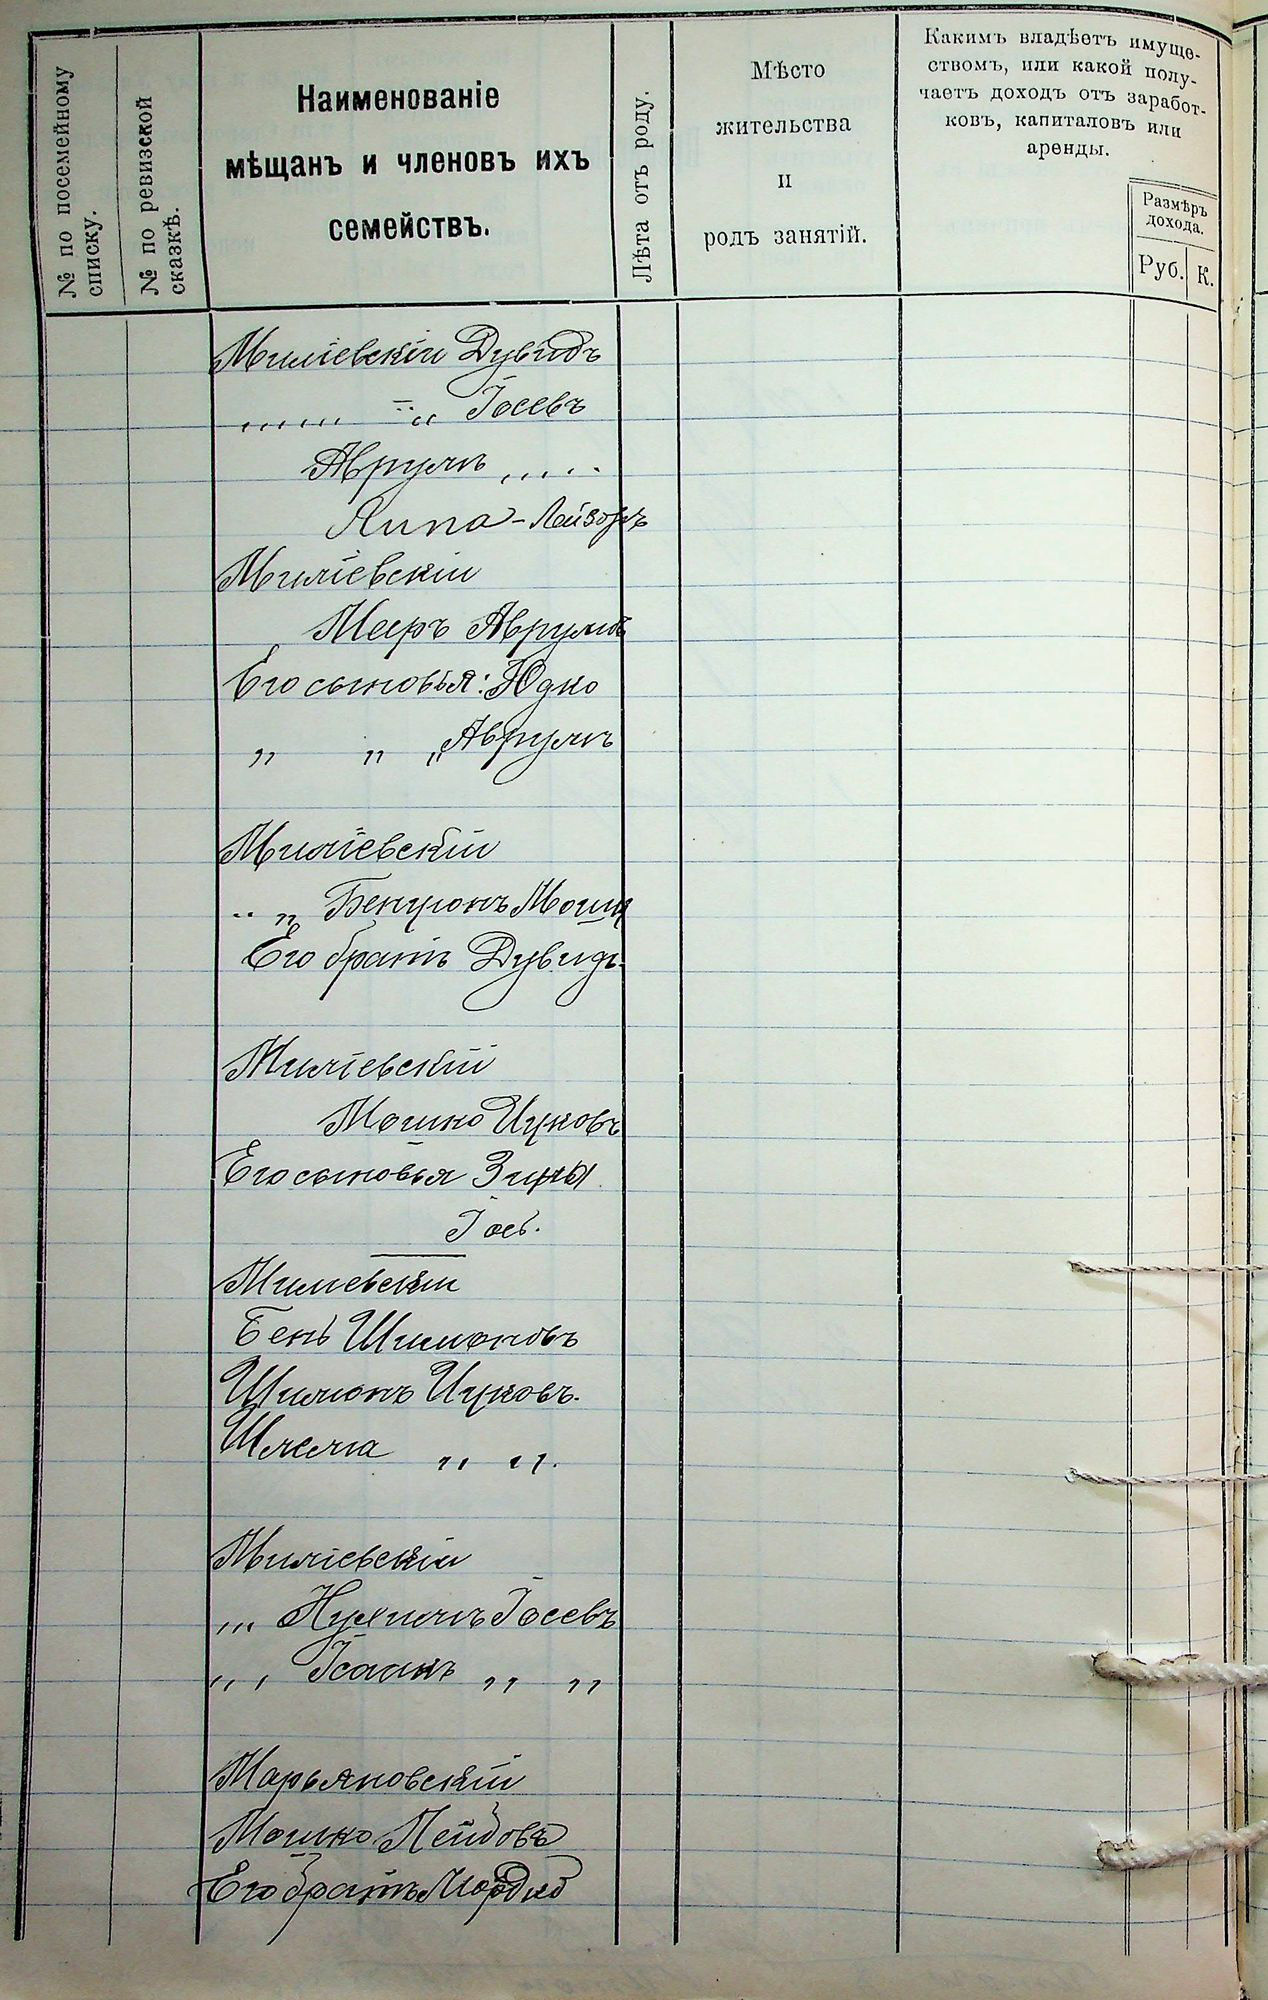 № по посемейному
списку.
№ по ревизской
сказкѣ.
Наименованіе
мѣщанъ и членовъ ихъ
семействъ.
Лѣта отъ роду.
Мѣсто
жительства
и
родъ занятій.
Какимъ владѣетъ имуще-
ствомъ, или какой полу-
чаетъ доходъ отъ заработ-
ковъ, капиталовъ или
аренды.
Размѣръ
дохода.
Руб. К.
Милievскій Дувидъ
„ „ „ „ „ Іосевъ
Аврумъ „ „ „
Липа - Лейзоръ
Миліевскій
Меръ Аврумовъ
Его сыновья: Юдко
„ „ „ Аврумъ
Миліевскій
„ „ Бенционъ Мошк
Его братъ Дувидъ
Миліевскій
Мошко Ицковъ
Его сыновья
Іос.
Миліевскій
Бень Шимоновъ
Шимонъ Ицковъ.
Шлема „ „.
Миліевскій
„ Нухимъ Іосевъ
„ „ Ісаакъ „ „
Марьяновскій
Мошко Лейбовъ
Его братъ Мордко